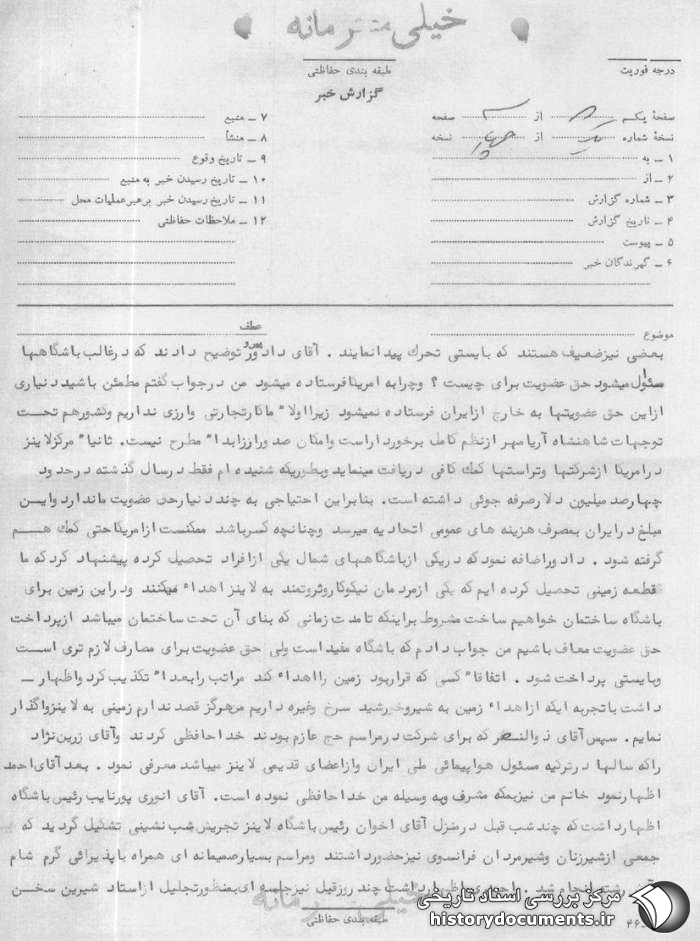 خیلی محرمانه
طبقه بندی حفاظتی
درجه فوریت
گزارش خبر
صفحهٔ یکم از صفحه
نسخهٔ شماره یک از چهار نسخه
۱ ـ به
۲ ـ از
۳ ـ شماره گزارش
۴ ـ تاریخ گزارش
۵ ـ پیوست
۶ ـ گیرندگان خبر
۷ ـ منبع
۸ ـ منشأ
۹ ـ تاریخ وقوع
۱۰ ـ تاریخ رسیدن خبر به منبع
۱۱ ـ تاریخ رسیدن خبر برهبر عملیات محل
۱۲ ـ ملاحظات حفاظتی
موضوع
عطف
بعضی نیز ضعیف هستند که بایستی تحرک پیدا نمایند . آقای داور توضیح دادند که در غالب باشگاهها
سئوال میشود حق عضویت برای چیست ؟ و چرا به امریکا فرستاده میشود من در جواب گفتم مطمئن باشید دنیاری
از این حق عضویتها به خارج از ایران فرستاده نمیشود زیرا اولا" ما کار تجارتی و ارزی نداریم و کشور هم تحت
توجهات شاهنشاه آریامهر از نظم کامل برخوردار است و امکان صدور ارز ابدا" مطرح نیست. ثانیا" مرکز لاینز
در امریکا از شرکتها و تراستها کمک کافی دریافت مینماید و بطوریکه شنیده ام فقط در سال گذشته در حدود
چهارصد میلیون دلار صرفه جوئی داشته است. بنابراین احتیاجی به چند دینار حق عضویت ما ندارد و این
مبلغ در ایران بمصرف هزینه های عمومی اتحادیه میرسد و چنانچه کسر باشد ممکنست از امریکا حتی کمک هم
گرفته شود . داور اضافه نمود که در یکی از باشگاههای شمال یکی از افراد تحصیل کرده پیشنهاد کرد که ما
قطعه زمینی تحصیل کرده ایم که یکی از مردمان نیکوکار و ثروتمند به لاینز اهداء میکنند و در این زمین برای
باشگاه ساختمان خواهیم ساخت مشروط براینکه تا مدت زمانی که بنای آن تحت ساختمان میباشد از پرداخت
حق عضویت معاف باشیم من جواب دادم که باشگاه مفید است ولی حق عضویت برای مصارف لازم تری است
و بایستی پرداخت شود . اتفاقا" کسی که قرار بود زمین را اهداء کند مراتب را بعدا" تکذیب کرد و اظهار ـ
داشت با تجربه ایکه از اهداء زمین به شیر و خورشید سرخ و غیره داریم من هرگز قصد ندارم زمینی به لاینز واگذار
نمایم . سپس آقای ذوالنصر که برای شرکت در مراسم حج عازم بودند خداحافظی کردند و آقای زرین نژاد
را که سالها در ترکیه مسئول هواپیمائی ملی ایران و از اعضای قدیمی لاینز میباشد معرفی نمود . بعد آقای احمد
اظهار نمود خانم من نیز بمکه مشرف و به وسیله من خداحافظی نموده است. آقای انوری پور نایب رئیس باشگاه
اظهار داشت که چند شب قبل در منزل آقای اخوان رئیس باشگاه لاینز تجریش شب نشینی تشکیل گردید که
جمعی از شیرزنان و شیرمردان فرانسوی نیز حضور داشتند و مراسم بسیار صمیمانه ای همراه با پذیرائی گرم شام
انجام شد . اظهار داشت چند روز قبل نیز جلسه ای بمنظور تجلیل از استاد شیرین سخن
خیلی محرمانه
طبقه بندی حفاظتی
مرکز بررسی اسناد تاریخی
historydocuments.ir